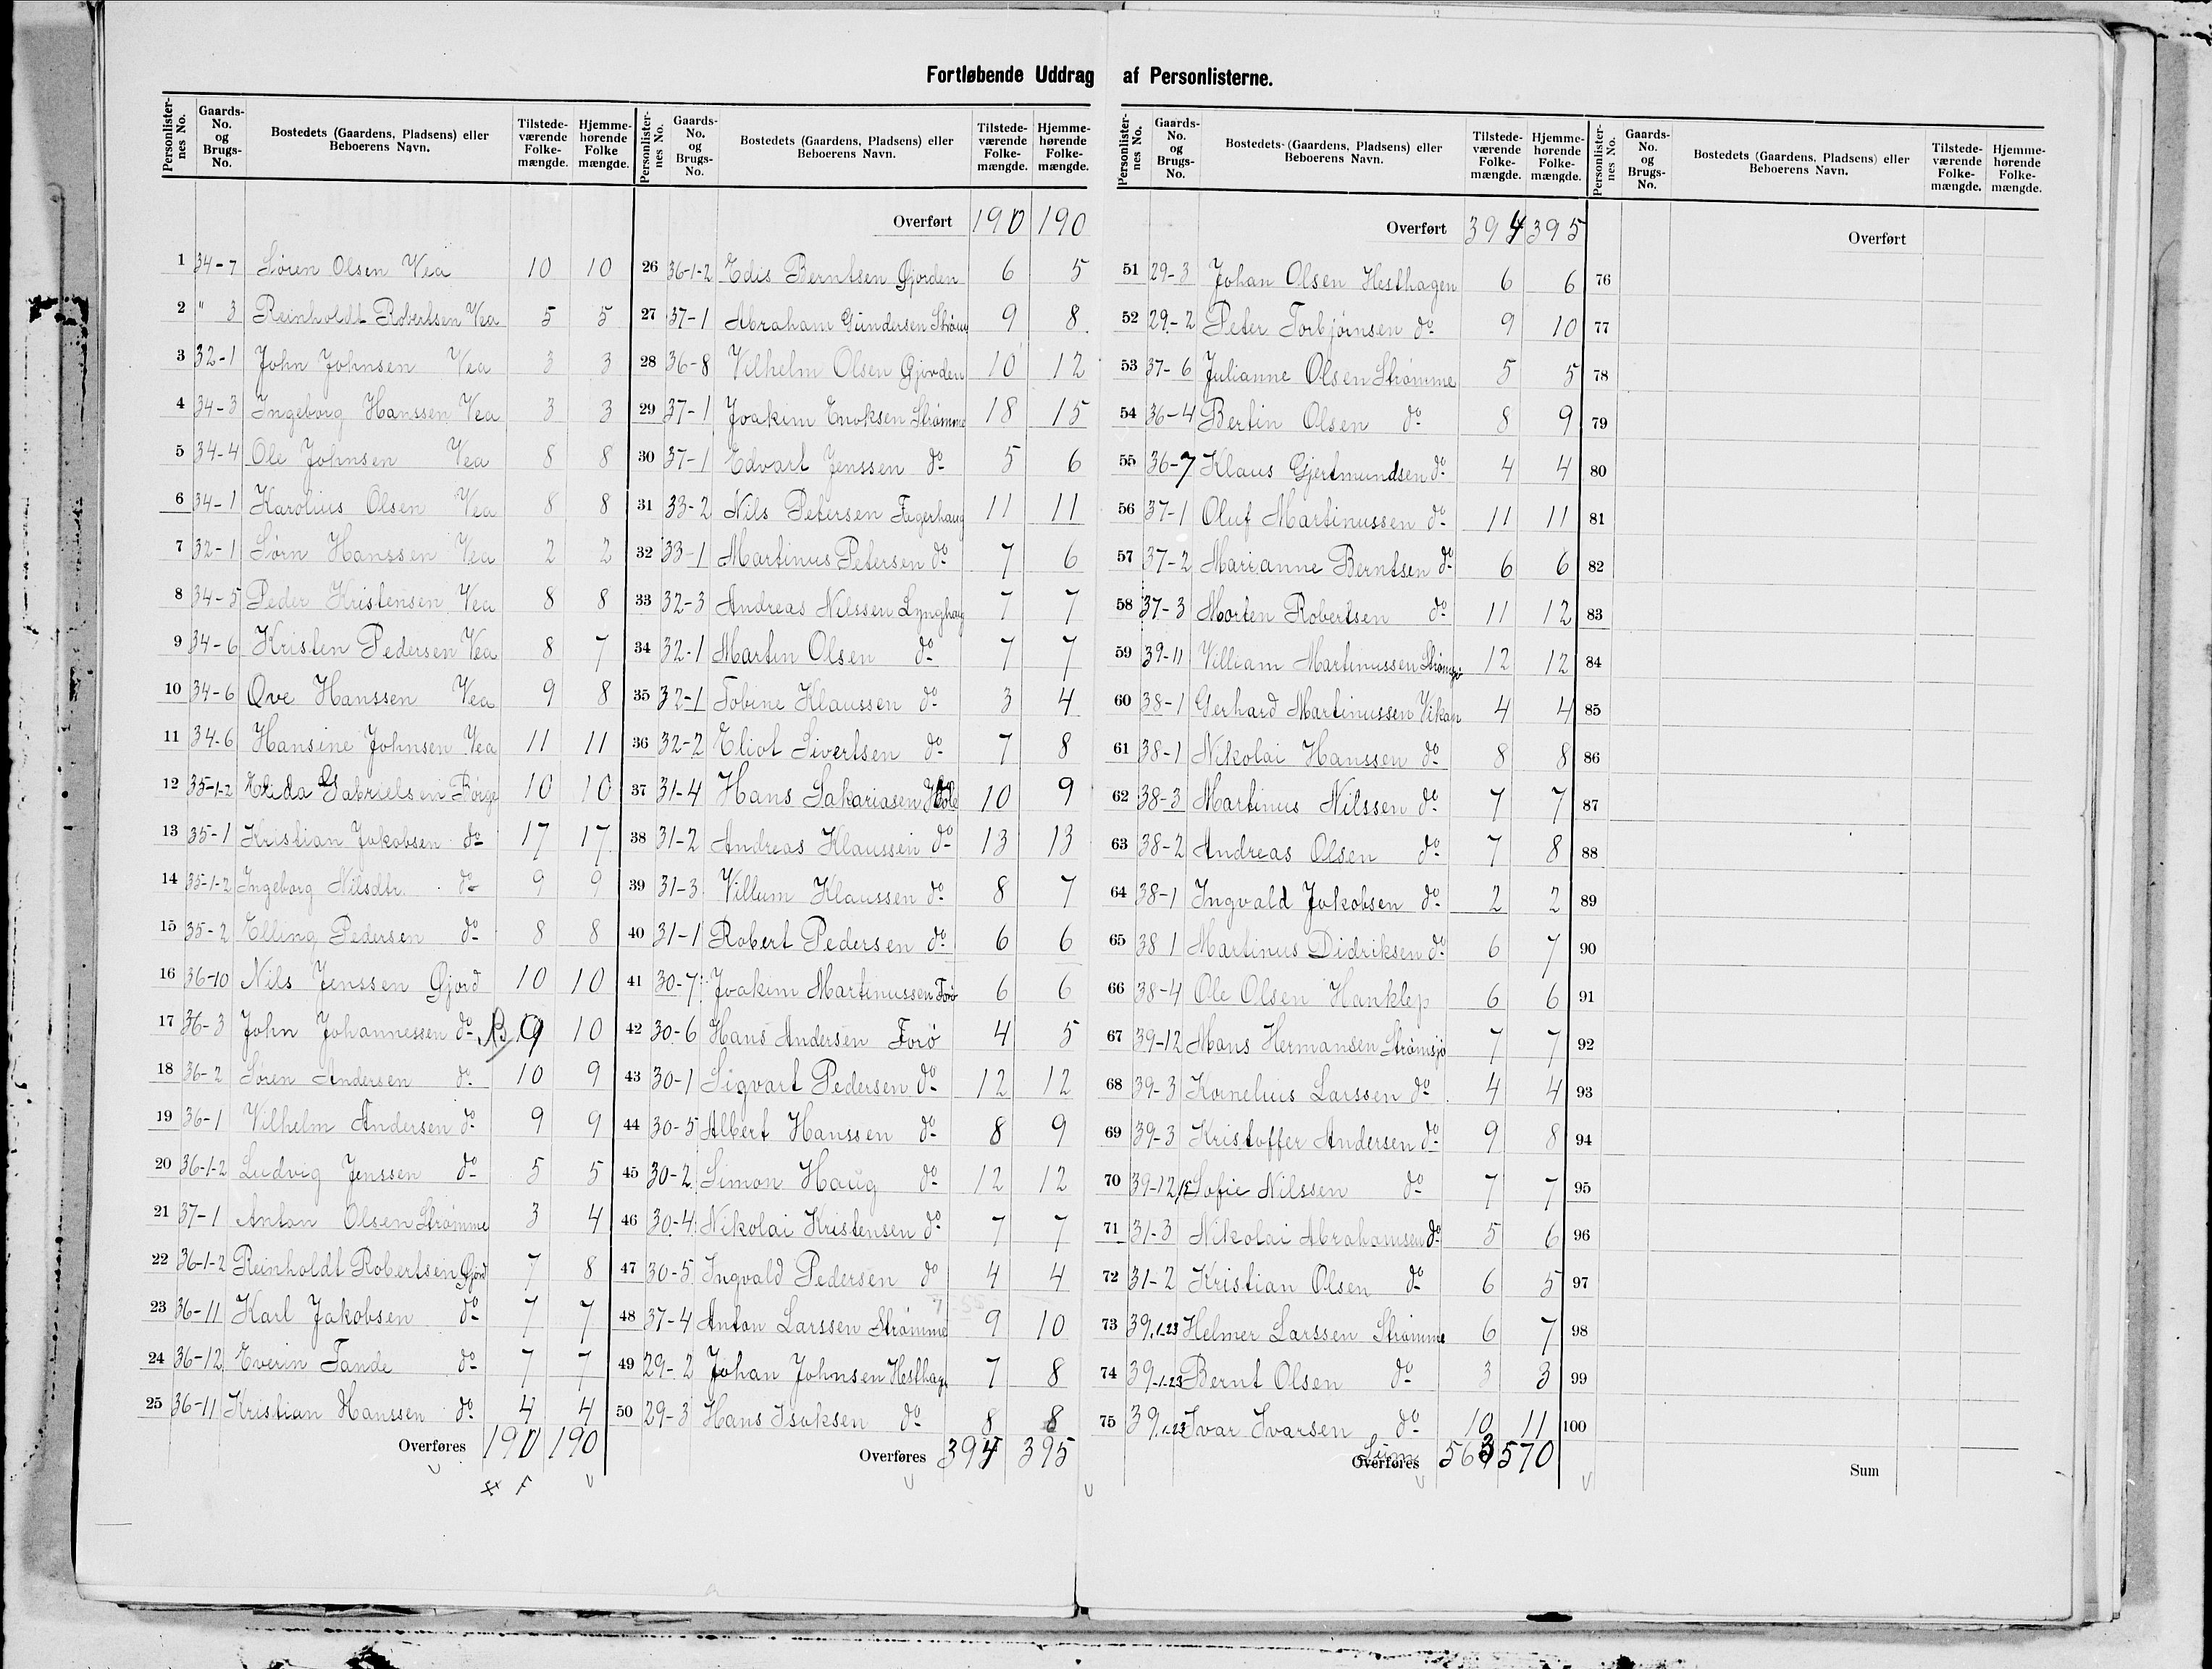 Fortløbende Uddrag af Personlisterne.
Personlister-nes No. Gaards-No. og Brugs-No. Bostedets (Gaardens, Pladsens) eller Beboerens Navn. Tilstede-værende Folke-mængde. Hjemme-hørende Folke mængde.
1 34-7 Søren Olsen Vea 10 10
2 " 3 Reinholdt Robertsen Vea 5 5
3 32-1 John Johnsen Vea 3 3
4 34-3 Ingeborg Hanssen Vea 3 3
5 34-4 Ole Johnsen Vea 8 8
6 34-1 Karolius Olsen Vea 8 8
7 32-1 Sørn Hanssen Vea 2 2
8 34-5 Peder Kristensen Vea 8 8
9 34-6 Kristen Pedersen Vea 8 7
10 34-6 Ove Hanssen Vea 9 8
11 34-6 Hansine Johnsen Vea 11 11
12 35-1-2 Elida Gabrielsen Børge 10 10
13 35-1 Kristian Jakobsen do 17 17
14 35-1-2 Ingeborg Nilsdtr. do 9 9
15 35-2 Elling Pedersen do 8 8
16 36-10 Nils Jenssen Gjord 10 10
17 36-3 John Johannessen do 9 10
18 36-2 Søren Andersen do 10 9
19 36-1 Vilhelm Andersen do 9 9
20 36-1-2 Ludvig Jenssen do 5 5
21 37-1 Anton Olsen Strømme 3 4
22 36-1-2 Reinholdt Robertsen Gjord 7 8
23 36-11 Karl Jakobsen do 7 7
24 36-12 Everin Tande do 7 7
25 36-11 Kristian Hanssen do 4 4
Overføres 190 190
Personlister-nes No. Gaards-No. og Brugs-No. Bostedets (Gaardens, Pladsens) eller Beboerens Navn. Tilstede-værende Folke-mængde. Hjemme-hørende Folke-mængde.
Overført 190 190
26 36-1-2 Edis Berntsen Gjorden 6 5
27 37-1 Abraham Gundersen Strøm 9 8
28 36-8 Vilhelm Olsen Gjorden 10 12
29 37-1 Joakim Enoksen Strømme 18 15
30 37-1 Edvart Jenssen do 5 6
31 33-2 Nils Petersen Fagerhaug 11 11
32 33-1 Martinus Petersen do 7 6
33 32-3 Andreas Nilssen Lynghaug 7 7
34 32-1 Martin Olsen do 7 7
35 32-1 Tobine Klaussen do 3 4
36 32-2 Eliot Sivertsen do 7 8
37 31-4 Hans Sakariasen Hole 10 9
38 31-2 Andreas Klaussen do 13 13
39 31-3 Villum Klaussen do 8 7
40 31-1 Robert Pedersen do 6 6
41 30-7 Joakim Martinussen Forø 6 6
42 30-6 Hans Andersen Forø 4 5
43 30-1 Sigvart Pedersen do 12 12
44 30-5 Albert Hanssen do 8 9
45 30-2 Simon Haug do 12 12
46 30-4 Nikolai Kristensen do 7 7
47 30-5 Ingvald Pedersen do 4 4
48 37-4 Anton Larssen Strømme 9 10
49 29-2 Johan Johnsen Hesthag 7 8
50 29-3 Hans Isaksen do 8 8
Overføres 394 395
Personlister-nes No. Gaards-No. og Brugs-No. Bostedets (Gaardens, Pladsens) eller Beboerens Navn. Tilstede-værende Folke-mængde. Hjemme-hørende Folke-mængde.
Overført 394 395
51 29-3 Johan Olsen Hesthagen 6 6
52 29-2 Peter Torbjørnsen do 9 10
53 37-6 Julianne Olsen Strømme 5 5
54 36-4 Bertin Olsen do 8 9
55 36-7 Klaus Gjertmundsen do 4 4
56 37-1 Oluf Martinussen do 11 11
57 37-2 Marianne Berntsen do 6 6
58 37-3 Morten Robertsen do 11 12
59 39-11 Villiam Martinussen Strømsjø 12 12
60 38-1 Gerhard Martinussen Vikan 4 4
61 38-1 Nikolai Hanssen do 8 8
62 38-3 Martinus Nilssen do 7 7
63 38-2 Andreas Olsen do 7 8
64 38-1 Ingvald Jakobsen do 2 2
65 38 1 Martinus Didriksen do 6 7
66 38-4 Ole Olsen Hanklep 6 6
67 39-12 Mons Hermansen Strømsjø 7 7
68 39-3 Kornelius Larssen do 4 4
69 39-3 Kristoffer Andersen do 9 8
70 39-12 Sofie Nilssen do 7 7
71 31-3 Nikolai Abrahamsen do 5 6
72 31-2 Kristian Olsen do 6 5
73 39.1.23 Helmer Larssen Strømme 6 7
74 39-1-23 Bernt Olsen do 3 3
75 39.1.23 Ivar Ivarsen do 10 11
Overføres Sum 563 570
Personlister-nes No. Gaards-No. og Brugs-No. Bostedets (Gaardens, Pladsens) eller Beboerens Navn. Tilstede-værende Folke-mængde. Hjemme-hørende Folke-mængde.
Overført
76
77
78
79
80
81
82
83
84
85
86
87
88
89
90
91
92
93
94
95
96
97
98
99
100
Sum